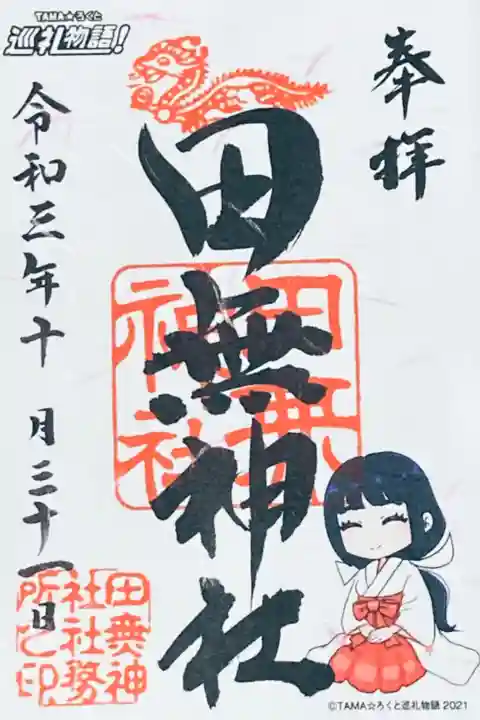 TAMA☆ろくと
巡礼物語!
奉拝
田無神社
田無神社
令和三年十月三十一日
田無神
社社務
所之印
©TAMA☆ろくと巡礼物語 2021